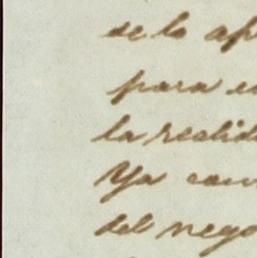 de la ap
para e
la realid
Ya con
del nego